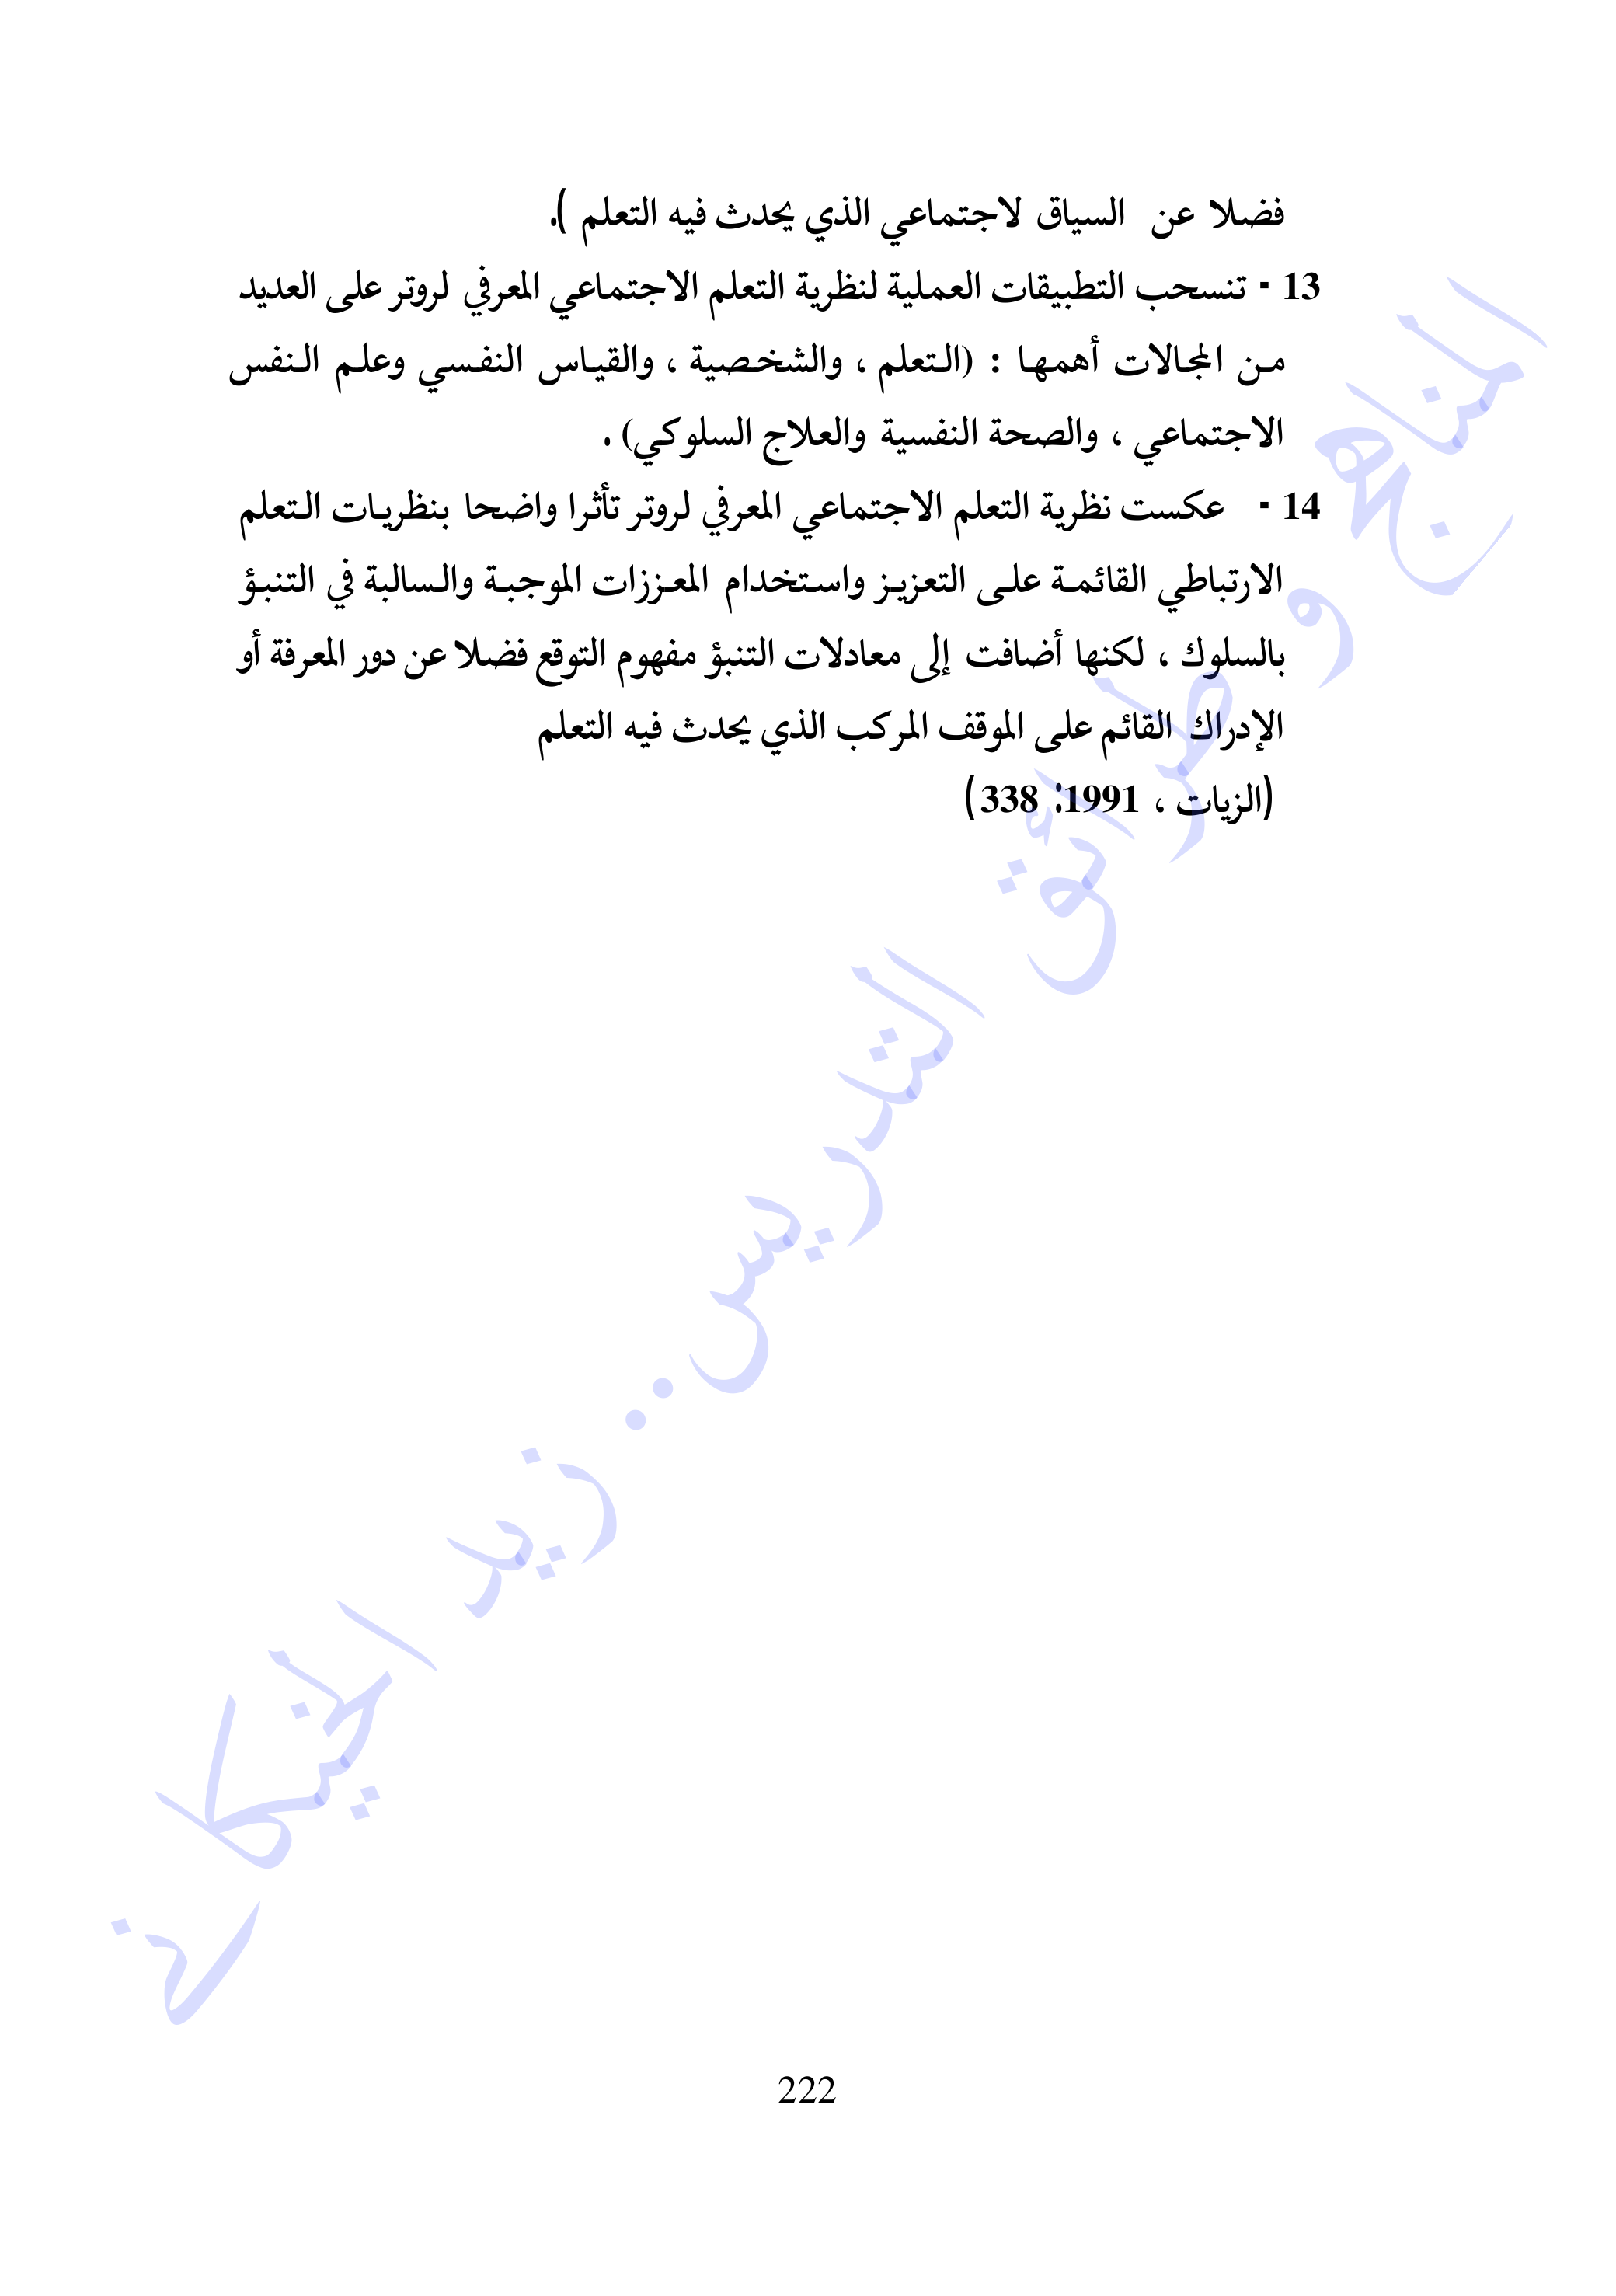 فضلا عن السياق لاجتماعي الذي يحدث فيه التعلم ).
13 - تنسحب التطبيقات العملية لنظرية التعلم الاجتماعي المعرفي لروتر على العديد
من المجالات أهمها : (التعلم ، والشخصية ، والقياس النفسي وعلم النفس
الاجتماعي ، والصحة النفسية والعلاج السلوكي) .
14 - عكست نظرية التعلم الاجتماعي المعرفي لروتر تأثرا واضحا بنظريات التعلم
الارتباطي القائمة على التعزيز واستخدام المعززات الموجبة والسالبة في التنبؤ
بالسلوك ، لكنها أضافت إلى معادلات التنبؤ مفهوم التوقع فضلا عن دور المعرفة أو
الإدراك القائم على الموقف المركب الذي يحدث فيه التعلم
(الزيات ، 1991: 338)
المناهج و طرائق التدريس.. زيد الخيكاني
222